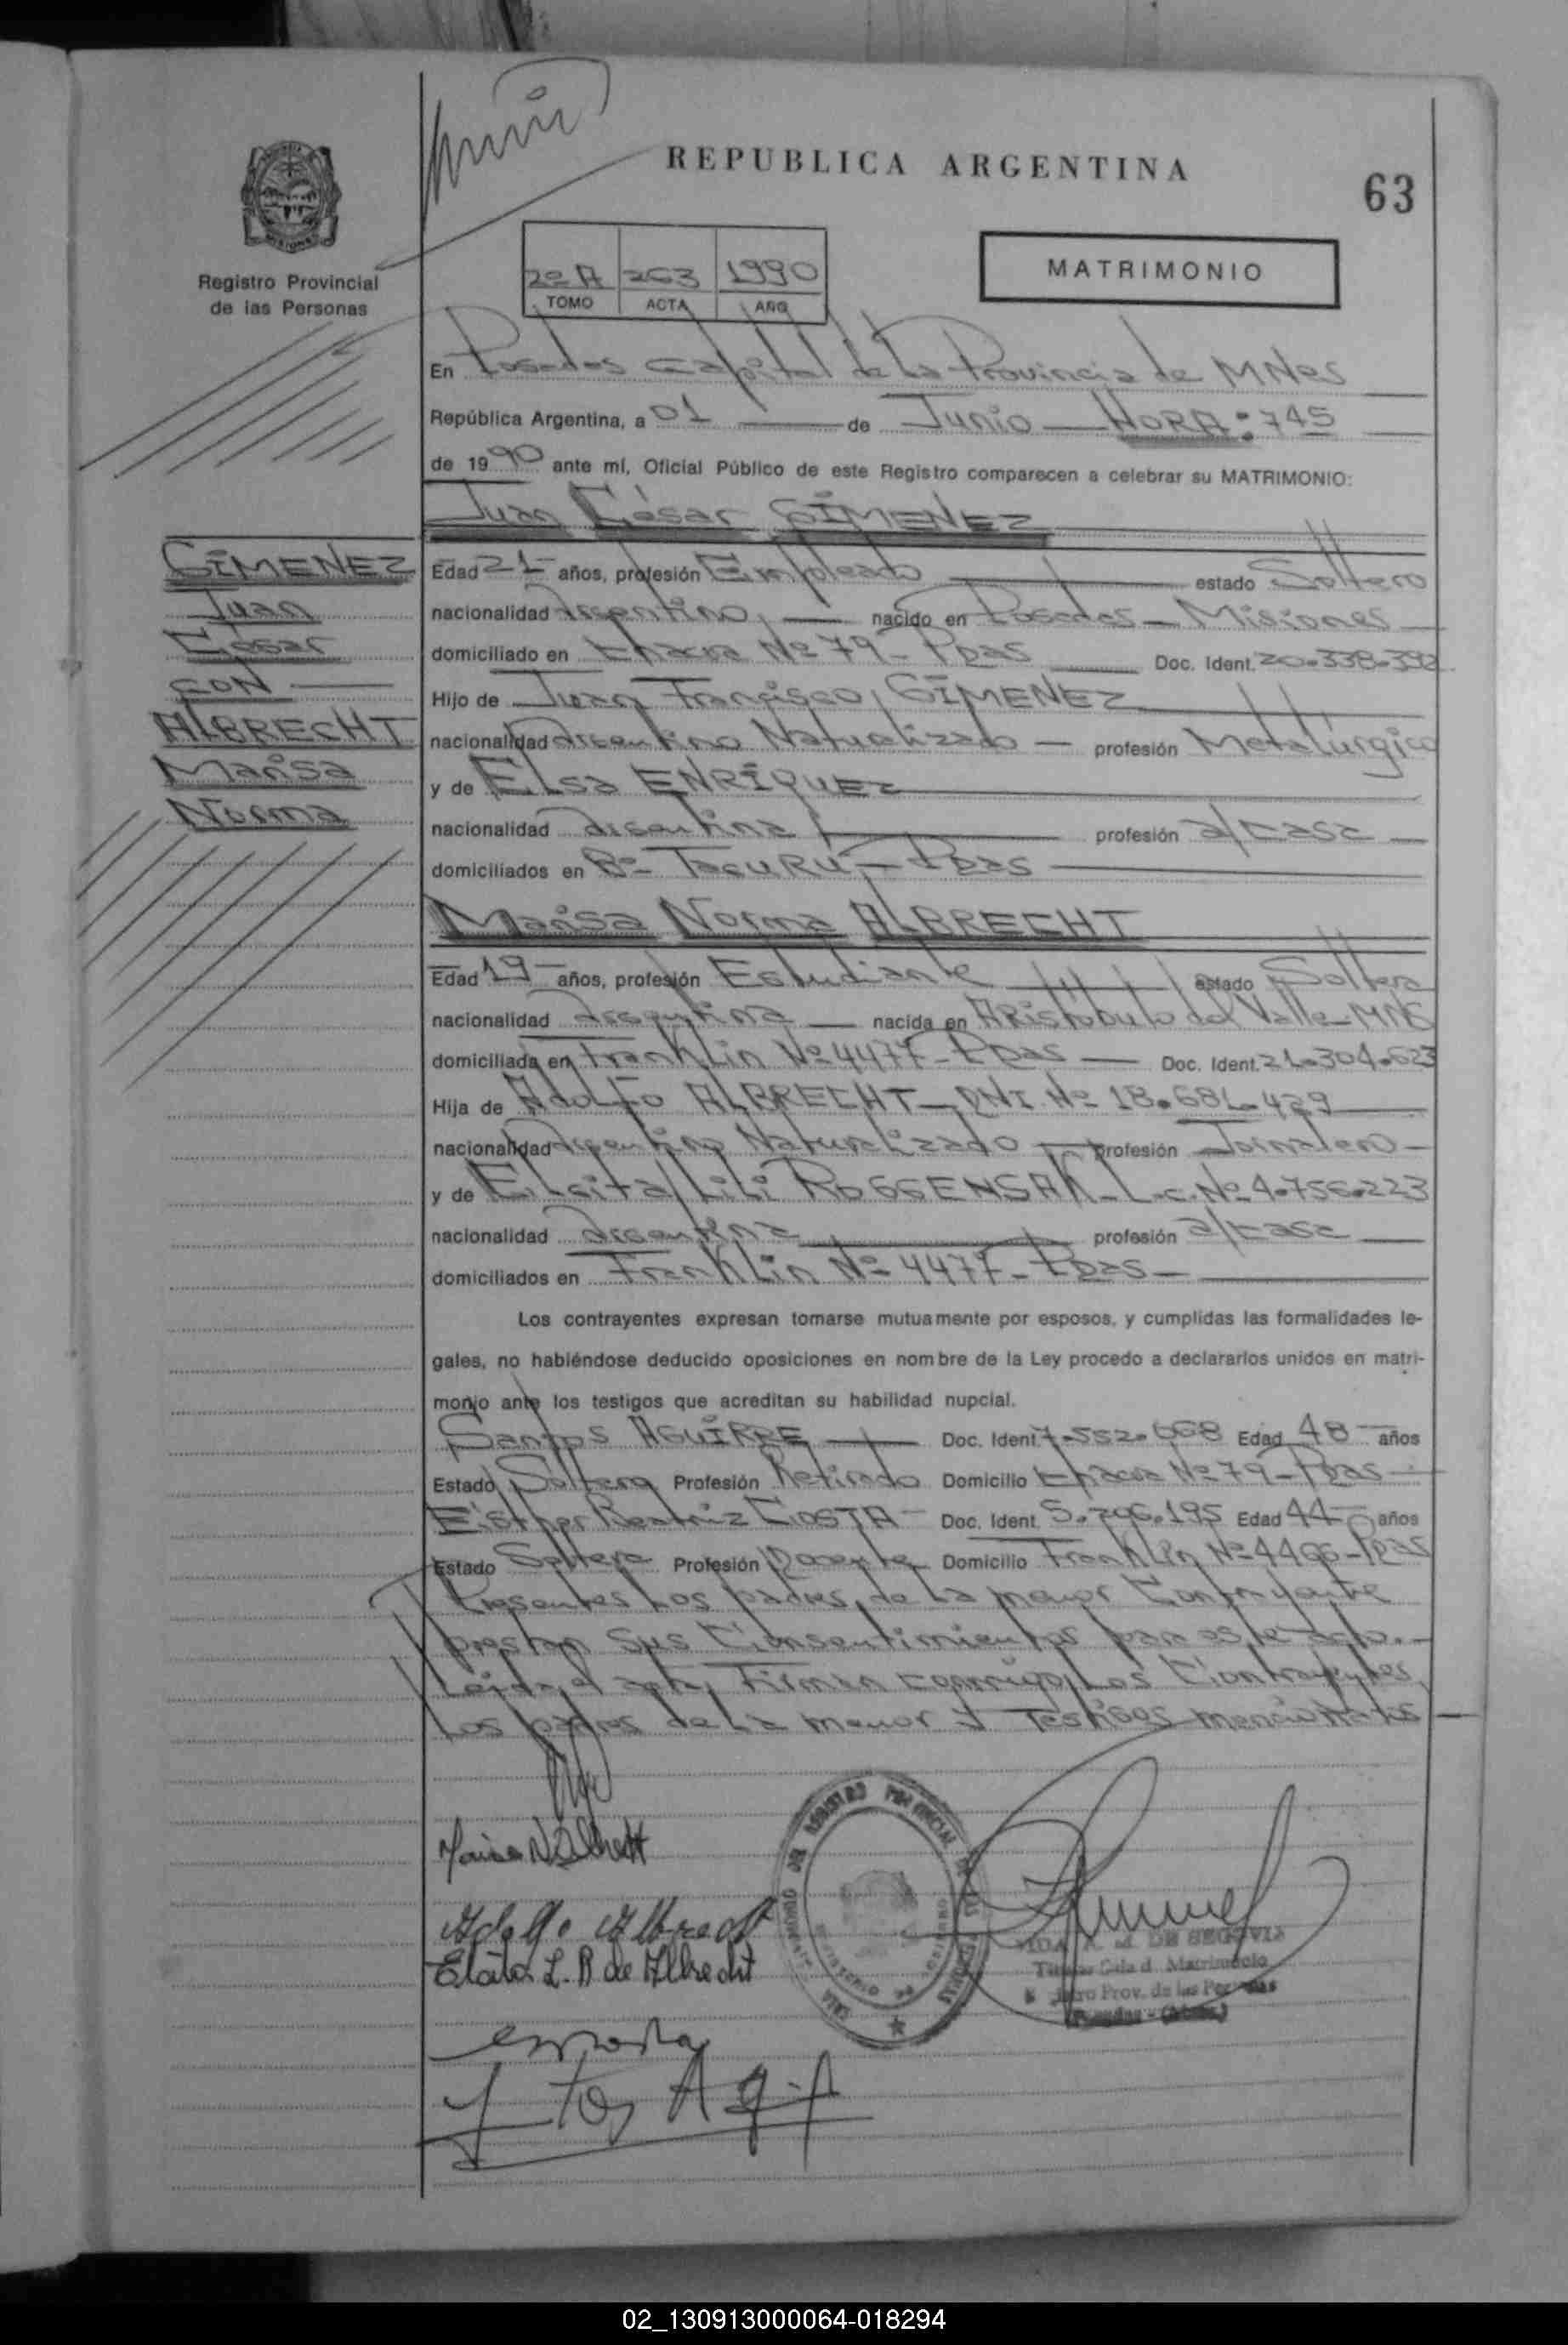 REPUBLICA ARGENTINA
63
Registro Provincial
de las Personas
2º A 263 1990
TOMO ACTA AÑO
MATRIMONIO
En Posadas Capital de La Provincia de MNes
República Argentina, a 01 de Junio HORA: 745
de 1990 ante mí, Oficial Público de este Registro comparecen a celebrar su MATRIMONIO:
Juan César GIMENEZ
GIMENEZ
Juan
César
CON
ALBRECHT
Marisa
Norma
Edad 21 años, profesión Empleado estado Soltero
nacionalidad Argentino nacido en Posadas - Misiones
domiciliado en Chacra Nº 79 - Pdas Doc. Ident. 20.338.392
Hijo de Juan Francisco GIMENEZ
nacionalidad Argentino Naturalizado - profesión Metalúrgico
y de Elsa ENRIQUEZ
nacionalidad Argentina profesión a/casa
domiciliados en Bº Tacurú - Pdas
Marisa Norma ALBRECHT
Edad 19 años, profesión Estudiante estado Soltera
nacionalidad Argentina nacida en Aristóbulo del Valle - MNes
domiciliada en Franklin Nº 4477 - Pdas Doc. Ident. 21.304.623
Hija de Adolfo ALBRECHT - DNI Nº 18.684.429
nacionalidad Argentino Naturalizado profesión Jornalero -
y de Elcita Lili ROGGENSAK - L.c. Nº 4.756.223
nacionalidad Argentina profesión a/casa
domiciliados en Franklin Nº 4477 - Pdas -
Los contrayentes expresan tomarse mutuamente por esposos, y cumplidas las formalidades le-
gales, no habiéndose deducido oposiciones en nombre de la Ley procedo a declararlos unidos en matri-
monio ante los testigos que acreditan su habilidad nupcial.
Santos AGUIRRE Doc. Ident. 7.552.068 Edad 48 años
Estado Soltero Profesión Retirado Domicilio Chacra Nº 79 - Pdas
Esther Beatriz COSTA - Doc. Ident. 5.706.195 Edad 44 años
Estado Soltera Profesión Docente Domicilio Franklin Nº 4406 - Pdas
Presentes Los padres de La menor Contrayente
prestan sus Consentimientos para este acto.-
Leida el acta, Firman conmigo, Los Contrayentes,
Los padres de La menor y Testigos mencionados
Marisa N Albrecht
Adolfo Albrecht
Elcita L. R de Albrecht
DE SEGOVIA
Titular Sala d. Matrimonio
Prov. de las Personas
02_130913000064-018294